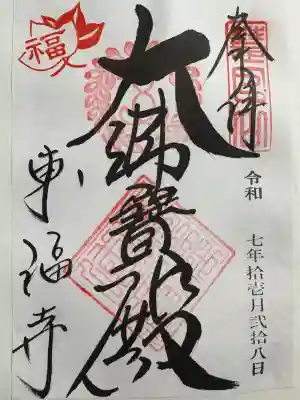 奉拝
令和 七年拾壱月弐拾八日
大佛寶殿
東福寺
福